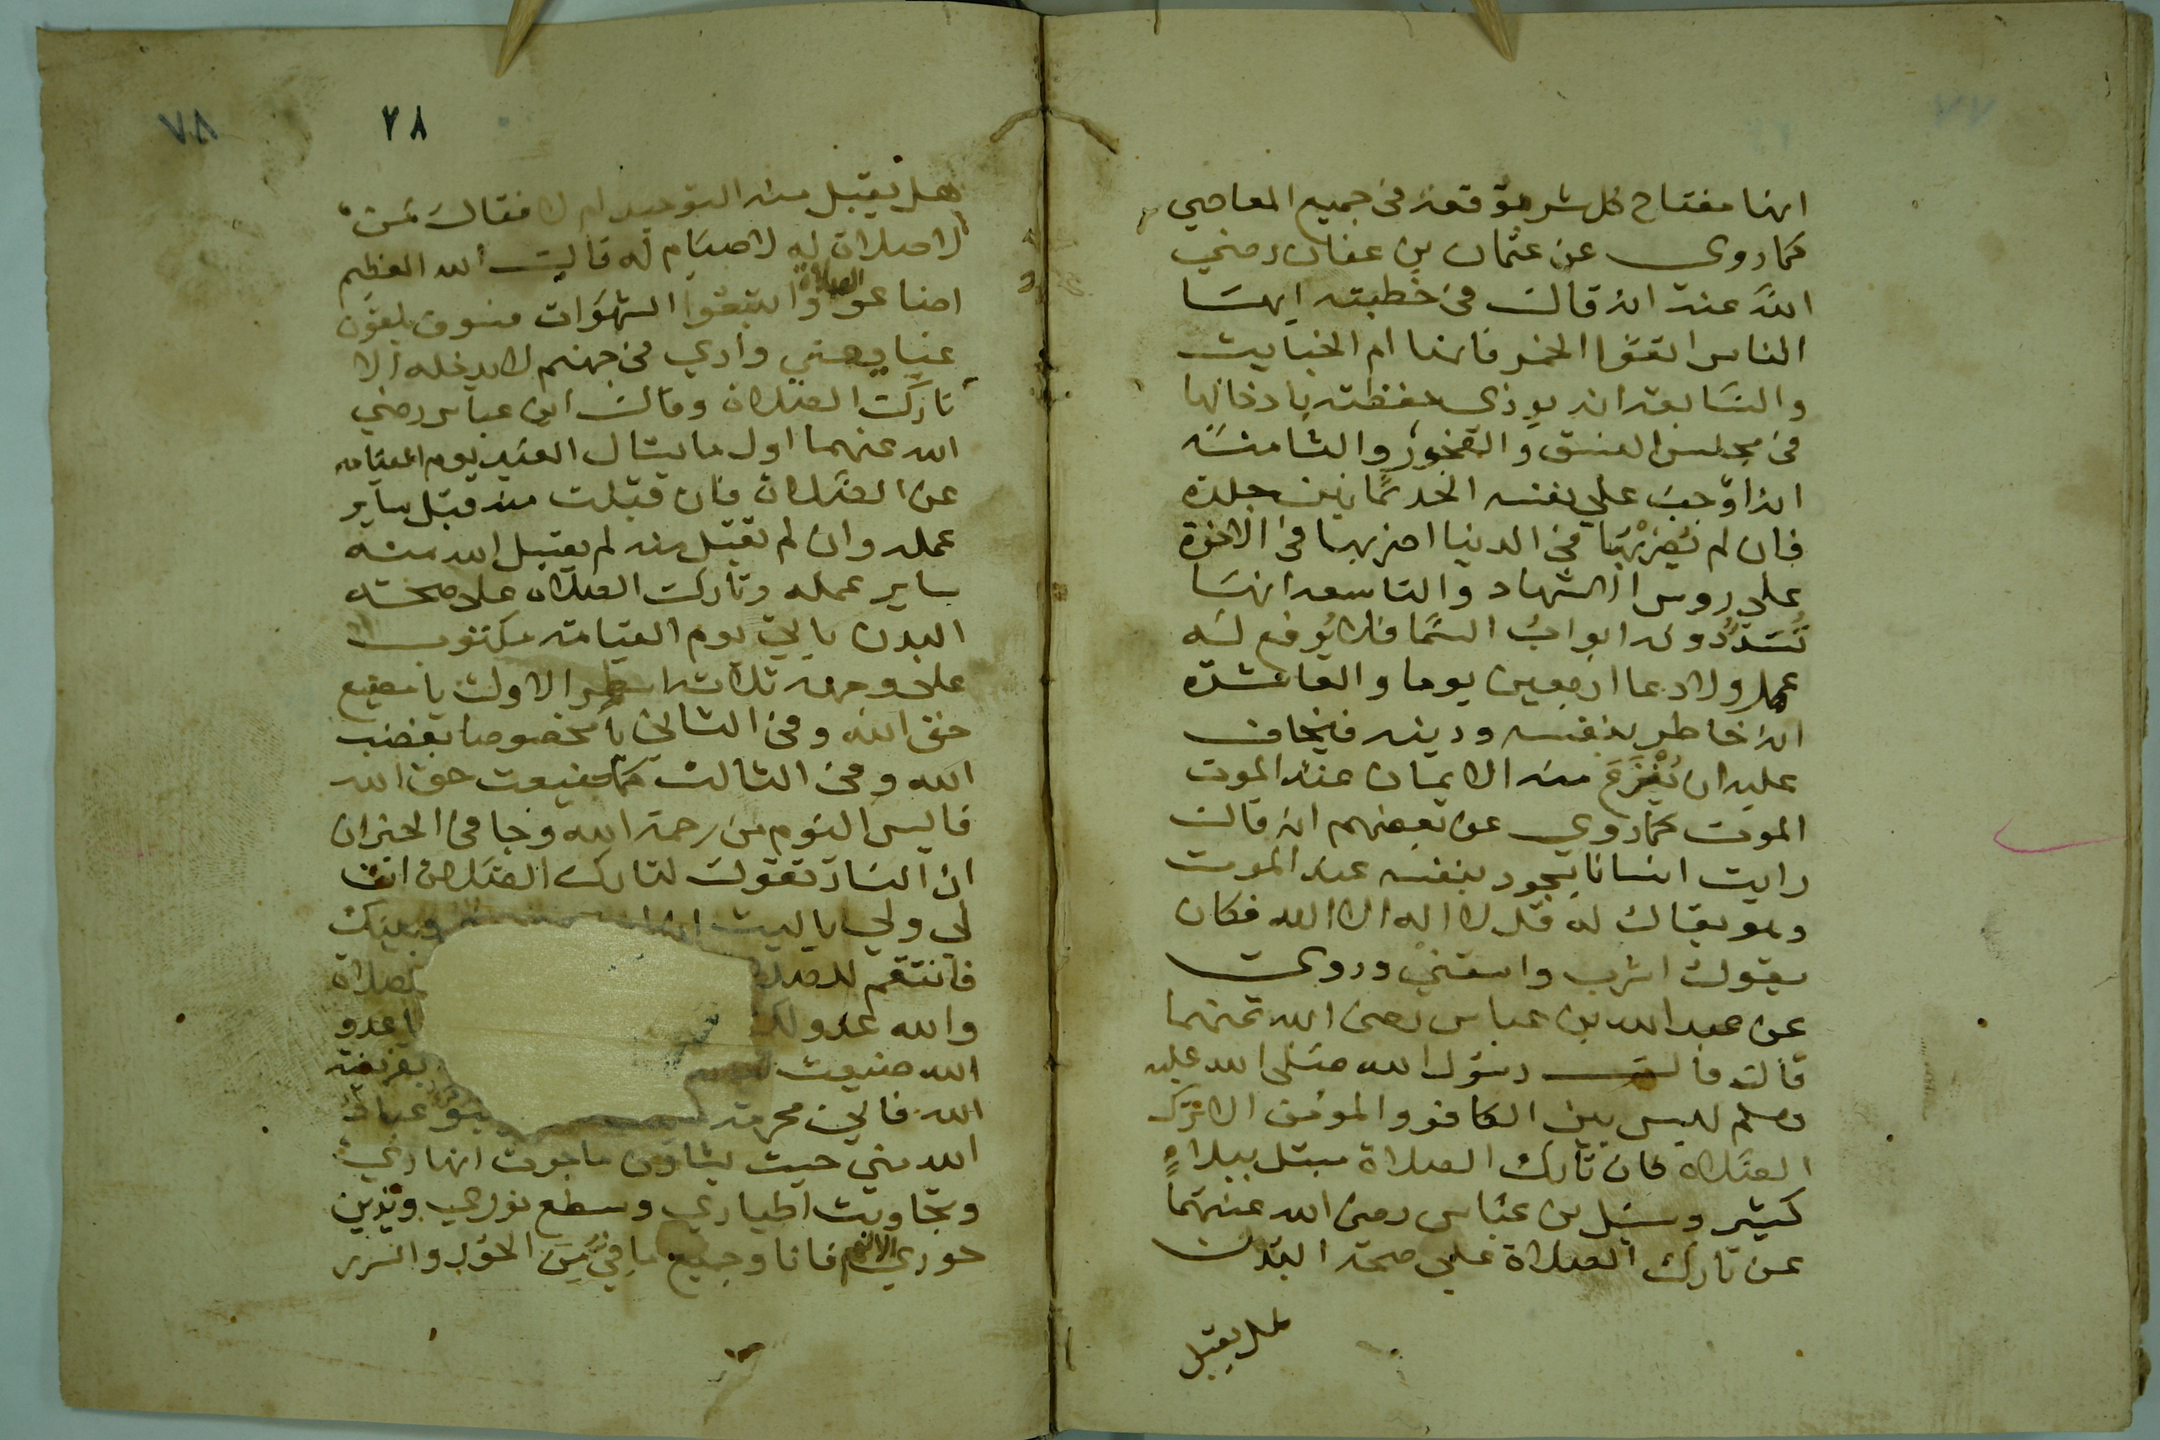 انها مفتاح كل شر موقعة في جميع المعاصي
كما روي عن عثمان بن عفان رضي
الله عنه انه قال في خطبته ايها
الناس اتقوا الخمر فانها ام الخبايث
والسابعة انه يوذي حفظته بادخالها
في مجلس الفسق والفجور والثامنة
انه اوجب علي نفسه الحد ثمانين جلدة
فان لم يضربها في الدنيا اضربها في الاخرة
علي روس الاشهاد والتاسعة انها
تسد دونه ابواب السما فلا يرفع له
عمل ولا دعا اربعين يوما والعاشرة
انه خاطر بنفسه ودينه فيخاف
عليه ان ينزع منه الايمان عند الموت
الموت كما روي عن بعضهم انه قال
رايت انسانا يجود بنفسه عند الموت
وهو يقال له قل لا اله الا الله فكان
يقول اشرب واسقني وروي
عن عبد الله بن عباس رضي الله عنهما
قال قال رسول الله صلي الله عليه
وسلم ليس بين الكافر والمومن الا ترك
الصلاة فان تارك الصلاة مبتل ببلاء
كثير وسيل بن عباس رضي الله عنهما
عن تارك الصلاة علي صحة البدن
هل يقبل
٧٨
٢٨
هل يقبل منه التوحيد ام لا فقال من
لا صلاة له لا صيام له قال الله العظيم
اضاعوا الصلاة واتبعوا الشهوات فسوف يلقون
غيا يعني وادي في جهنم لا يدخله الا
تاركت الصلاة وقال ابن عباس رضي
الله عنهما اول ما يسال العبد يوم القيامه
عن الصلاة فان قبلت منه قبل ساير
عمله وان لم تقبل منه لم يقبل الله منه
ساير عمله وتاركت الصلاة على صحته
البدن ياتي يوم القيامة مكتوب
على وجهه ثلاثه اسطر الاول يا مضيع
حق الله وفي الثاني يا مخصوصا بغضب
الله وفي الثالث كما ضيعت حق الله
فايس اليوم من رحمة الله وجا في الخبر ان
ان النار تقول لتارك الصلاة انت
لي ولي يا ليت وبينك
فانتقم للصلاة
والله عدو لك يا عدو
الله ضيعت بفريضة
الله فاني محرمة
الله مني حيث يشاون ما جرت انهاري
وتجاوبت اطياري وسطع نوري وتزين
حوري الا لهم فانا وجميع ما في من الحور والسرر